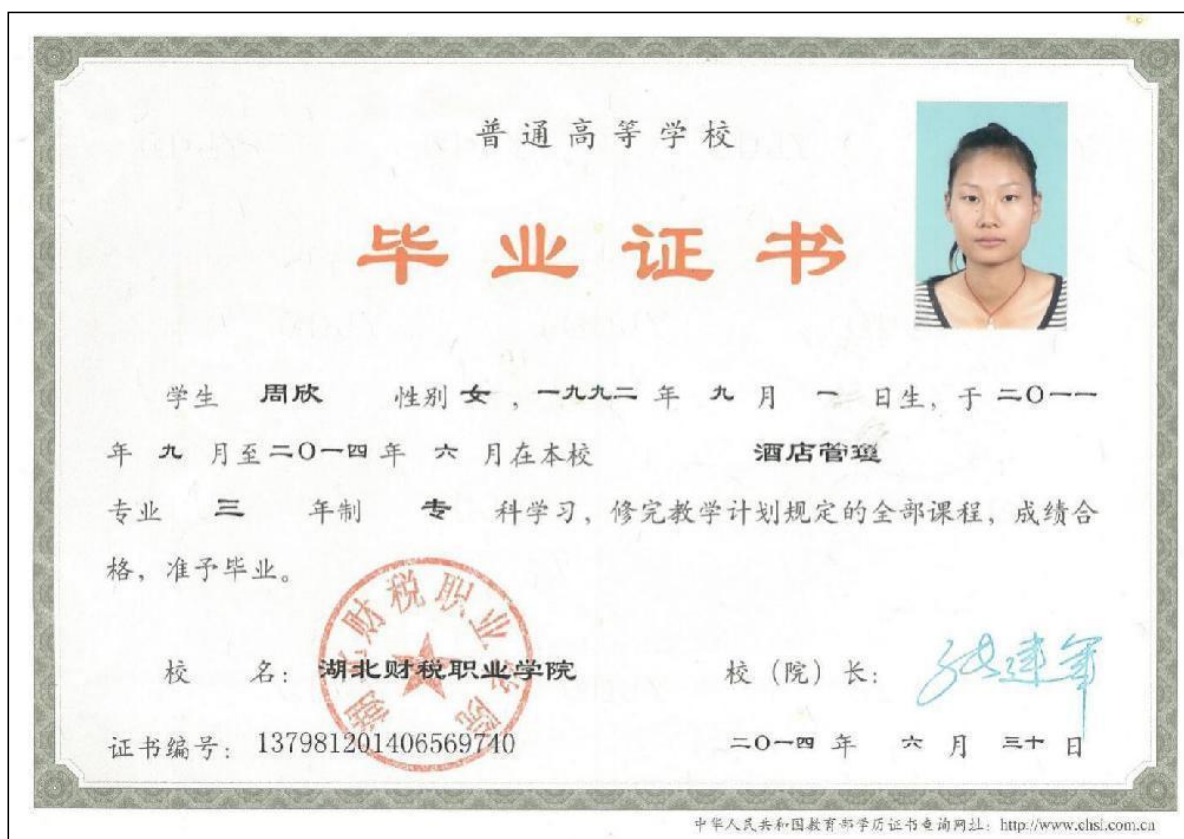 普通高等学校
毕业证书
学生 周欣 性别 女 ，一九九二 年 九 月 一 日生，于 二〇一一
年 九 月至 二〇一四 年 六 月在本校 酒店管理
专业 三 年制 专 科学习，修完教学计划规定的全部课程，成绩合
格，准予毕业。
湖北财税职业学院
校 名：湖北财税职业学院 校（院）长：
证书编号：137981201406569740 二〇一四 年 六 月 三十 日
中华人民共和国教育部学历证书查询网址：http://www.chsi.com.cn